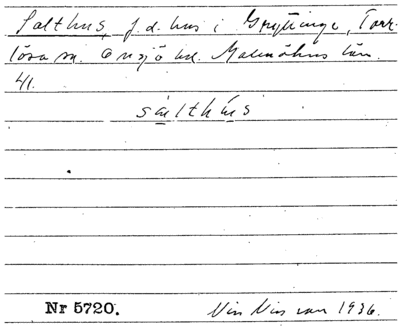 Salthus, f.d. hus i Gryttinge, Torr-
lösa sn. Onsjö hd. Malmöhus län.
41.
sálthús
Nr 5720.
1936.